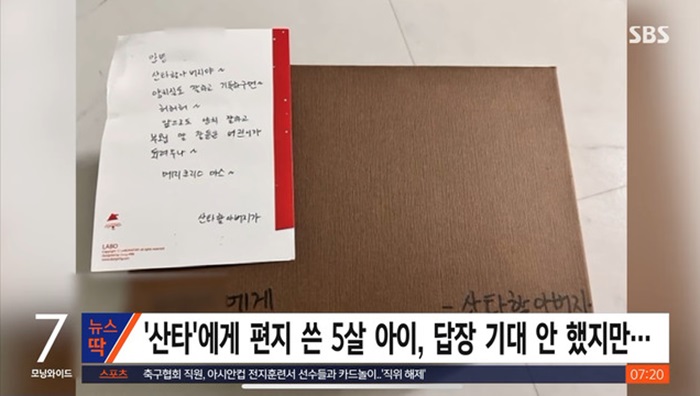 SBS
안녕
산타할아버지야~
양치질도 잘하고 기특하구면~
허허허~
앞으로도 양치 잘하고
부모님 말 잘듣는 어린이가
되려무나~
메리크리스마스~
산타할아버지가
LABO
에게
-산타할아버지-
7
모닝와이드
뉴스
딱
'산타'에게 편지 쓴 5살 아이, 답장 기대 안 했지만…
스포츠
축구협회 직원, 아시안컵 전지훈련서 선수들과 카드놀이..'직위 해제'
07:20